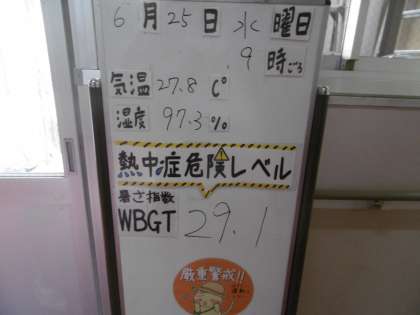 6月25日水曜日
9時ごろ
気温27.8C°
湿度97.3%
熱中症危険レベル
暑さ指数
WBGT 29.1
厳重警戒!!